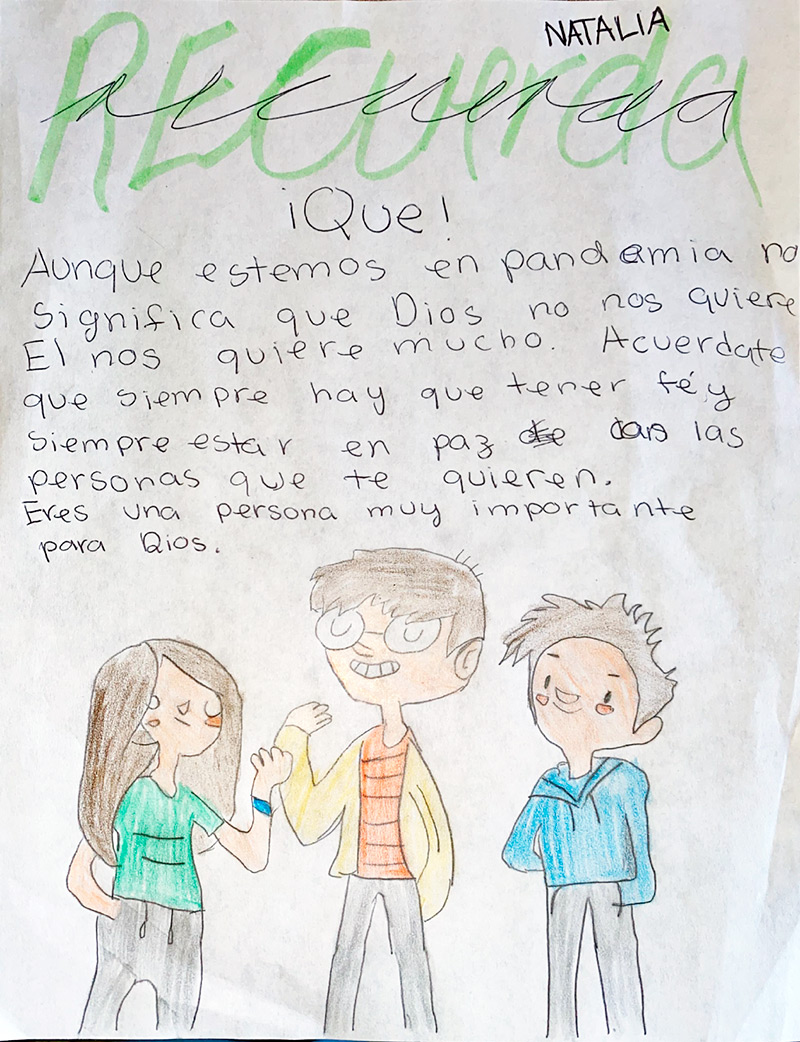 NATALIA
RECuerda
recuerda
¡Que!
Aunque estemos en pandemia no
significa que Dios no nos quiere
El nos quiere mucho. Acuerdate
que siempre hay que tener fé, y
siempre estar en paz las
personas que te quieren.
Eres una persona muy importante
para Dios.